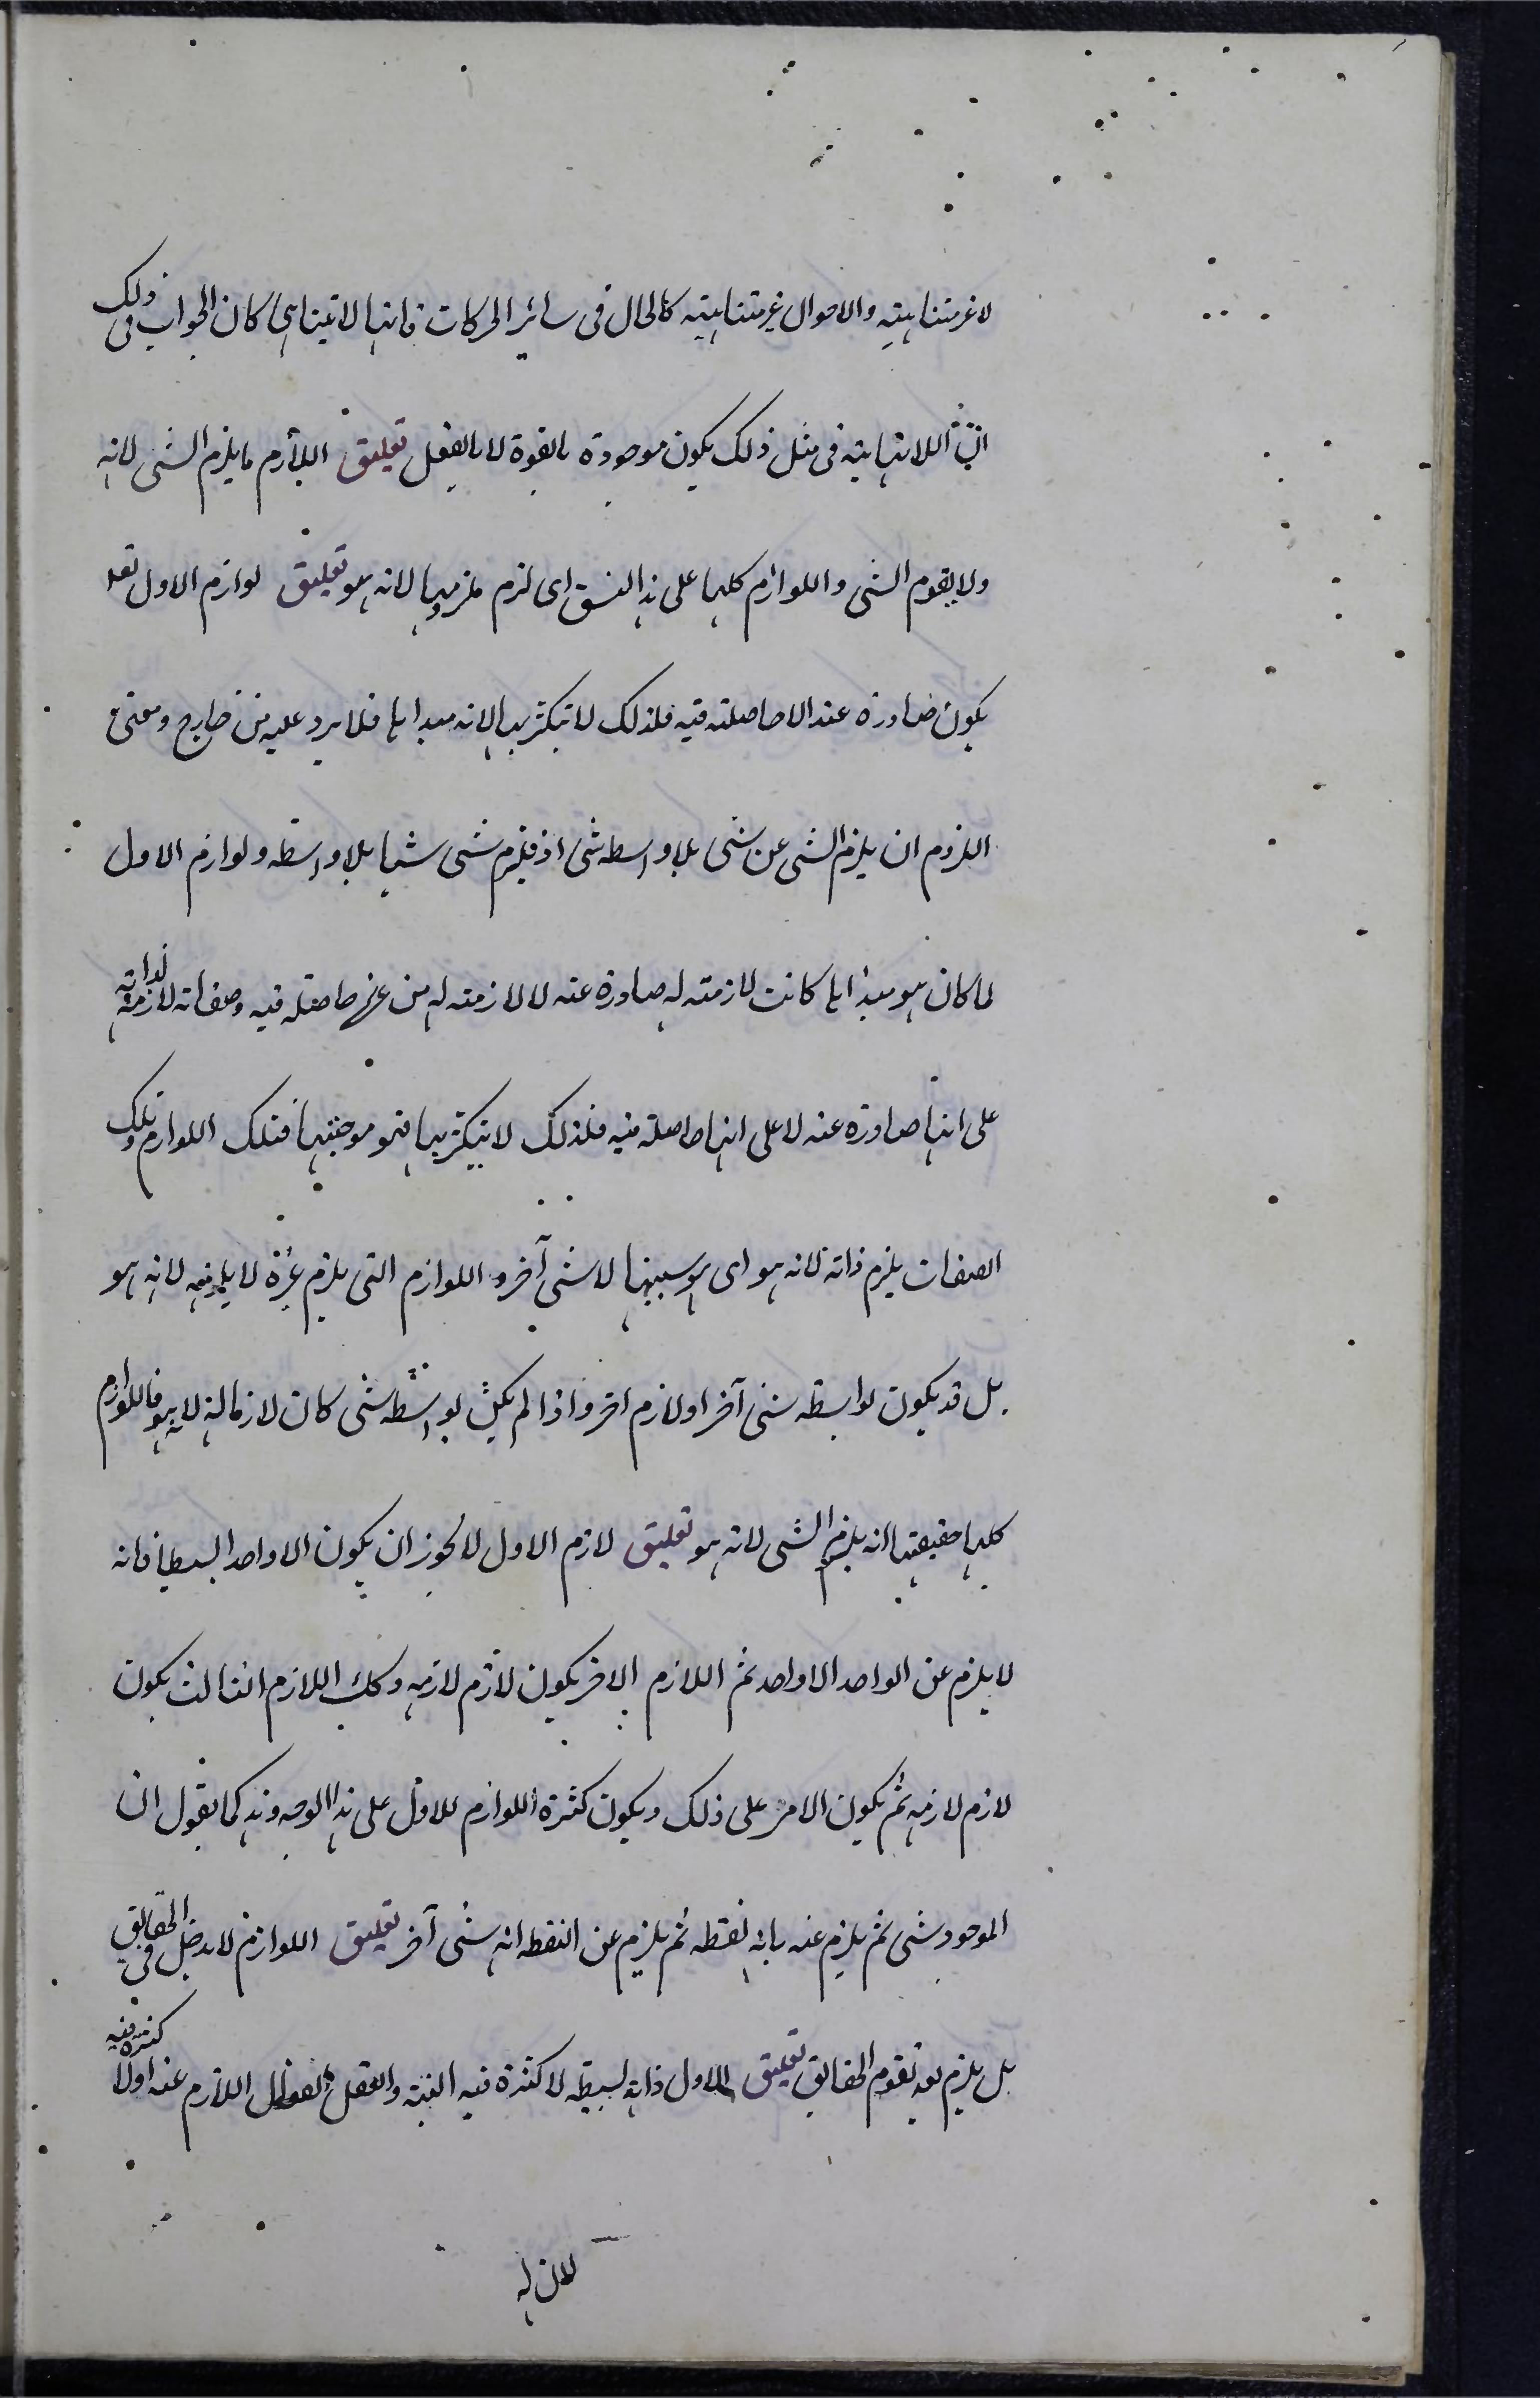 لا غير متناهية والاحوال غير متناهية كالحال فى سائر الحركات فانها لا تتناهى كان الجواب فى ذلك
ان اللانهاية فى مثل ذلك يكون موجودة بالقوة لا بالفعل تعليق اللازم ما يلزم الشئ لانه
ولا يقوم الشئ واللوازم كلها على هذا النسق اى لزم ملزومها لانه هو تعليق لوازم الاول تعا
يكون صادرة عنه لا حاصلة فيه فلذلك لا يتكثر بها لانه مبداها فلا يرد عليه من خارج ومعنى
اللزوم ان يلزم الشئ عن شئ بلا واسطه شئ اذ فيلزم شئ شيا بلا واسطه ولوازم الاول
لما كان هو مبدأها كانت لازمته له صادرة عنه لا لازمته له من غيره حاصله فيه وصفاته لازمة لذاته
على انها صادرة عنه لا على انها حاصلة فيه فلذلك لا يتكثر بها فهو موجبها فتلك اللوازم وتلك
الصفات يلزم ذاته لانه هو اى هو سببها لا شئ آخر و اللوازم التى يلزم غيره لا يلزمه لانه هو
بل قد يكون لواسطه شئ آخر او لازم اخر واذا لم يكن بواسطه شئ كان لازما له لانه هو فاللوازم
كلها حقيقتها انه يلزم الشئ لانه هو تعليق لازم الاول لا يجوز ان يكون الا واحدا بسيطا فانه
لا يلزم عن الواحد الا واحد ثم اللازم الاخر يكون لازم لازمه وكك اللازم الثالث يكون
لازم لازمه ثم يكون الامر على ذلك ويكون كثرة اللوازم للاول على هذا الوجه وهذه كما يقول ان
الموجود شئ ثم يلزم عنه بانه نقطه ثم يلزم عن النقطه انه شئ آخر تعليق اللوازم لا يدخل فى الحقايق
بل يلزم بعد تقوم الحقايق تعليق الاول ذاته بسيطه لا كثرة فيه البته والعقل الفعال اللازم عنه اولا كثرة فيه
لان له